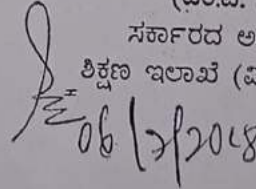 ಸರ್ಕಾರದ ಅ
ಶಿಕ್ಷಣ ಇಲಾಖೆ (ವ
06/7/2018